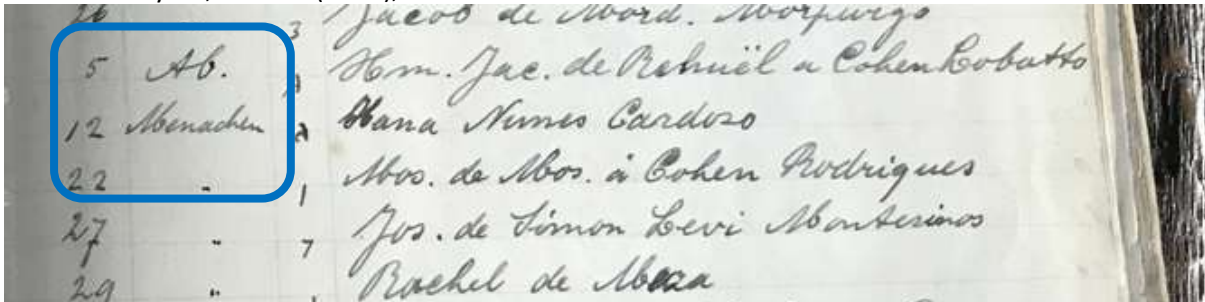 26 3 Jacob de Mord. Morpurgo
5 Ab. Hm. Jac. de Rehuël a Cohen Lobatto
12 Menachem Hana Nunes Cardozo
22 " 1 Mos. de Mos. à Cohen Rodrigues
27 " 7 Jos. de Simon Levi Montesinos
29 " Rachel de Meza